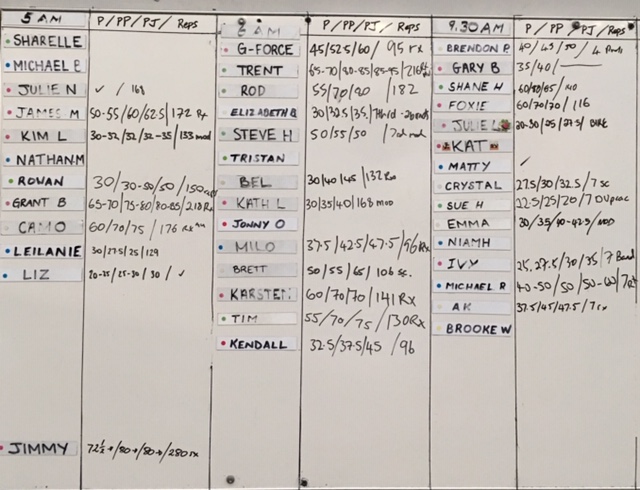 5 AM P/PP/PJ/Reps
SHARELLE
MICHAEL B
JULIE N ✓ / 168
JAMES M 50-55/60/62.5/172 Rx
KIM L 30-32/32/32-35/133 mod
NATHAN M
ROWAN 30/30-50/50/150
GRANT B 65-70/75-80/80-85/210 Rx
CAMO 60/70/75 / 176 rx
LEILANIE 30/27.5/25/129
LIZ 20-25/25-30/30/ ✓
JIMMY 72½+/80+/80+/280 rx
6 AM P/PP/PJ/Reps
G-FORCE 45/52.5/60/ 95 rx
TRENT 65-70/80-85/85-95/216
ROD 55/70/80 /182
ELIZABETH B 30/32.5/35/
STEVE H 50/55/50 /
TRISTAN
BEL 30/40/45/132 Rx
KATH L 30/35/40/168 mod
JONNY O
MILO 37.5/42.5/47.5/96 Rx
BRETT 50/55/65/106 sc.
KARSTEN 60/70/70/141 Rx
TIM 55/70/75/130 Rx
KENDALL 32.5/37.5/45 /96
9.30 AM P/PP/PJ/Reps
BRENDON P 40/45/50/ 4
GARY B 35/40/
SHANE H 60/60/65/
FOXIE 60/70/70/ 116
JULIE L 20-30/25/27.5/ BIKE
KAT
MATTY ✓
CRYSTAL 27.5/30/32.5/7 sc
SUE H 22.5/25/20/7
EMMA 30/35/40-42.5/MOD
NIAMH
IVY 25, 27.5/30/35/7 Band
MICHAEL R 40-50/50/50-60/7 rx
AK 37.5/45/47.5/7 rx
BROOKE W